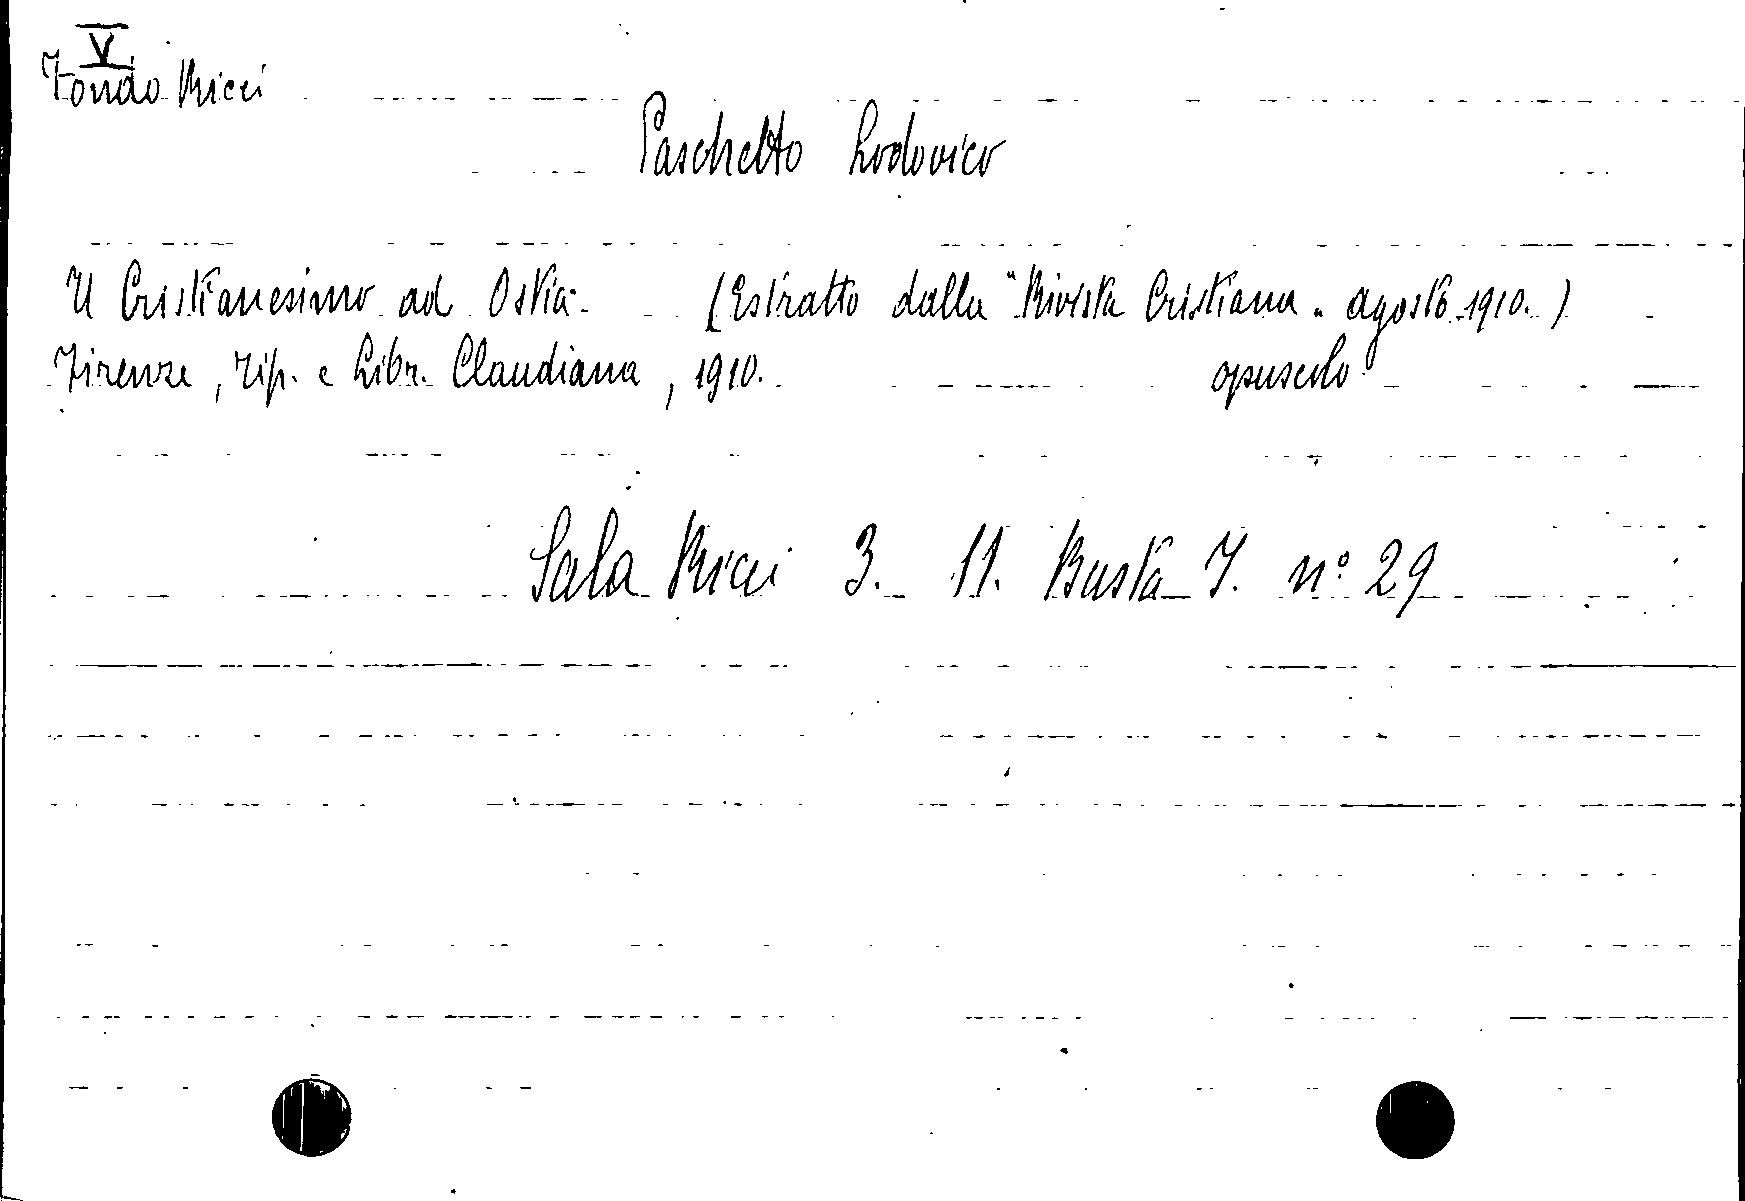 V
Fondo Ricci
Paschetto Lodovico
Il Cristianesimo ad Ostia. (Estratto dalla "Rivista Cristiana" agosto 1910.)
Firenze, Tip. e Libr. Claudiana, 1910. opuscolo
Sala Ricci 3. 11. Busta I. n° 29